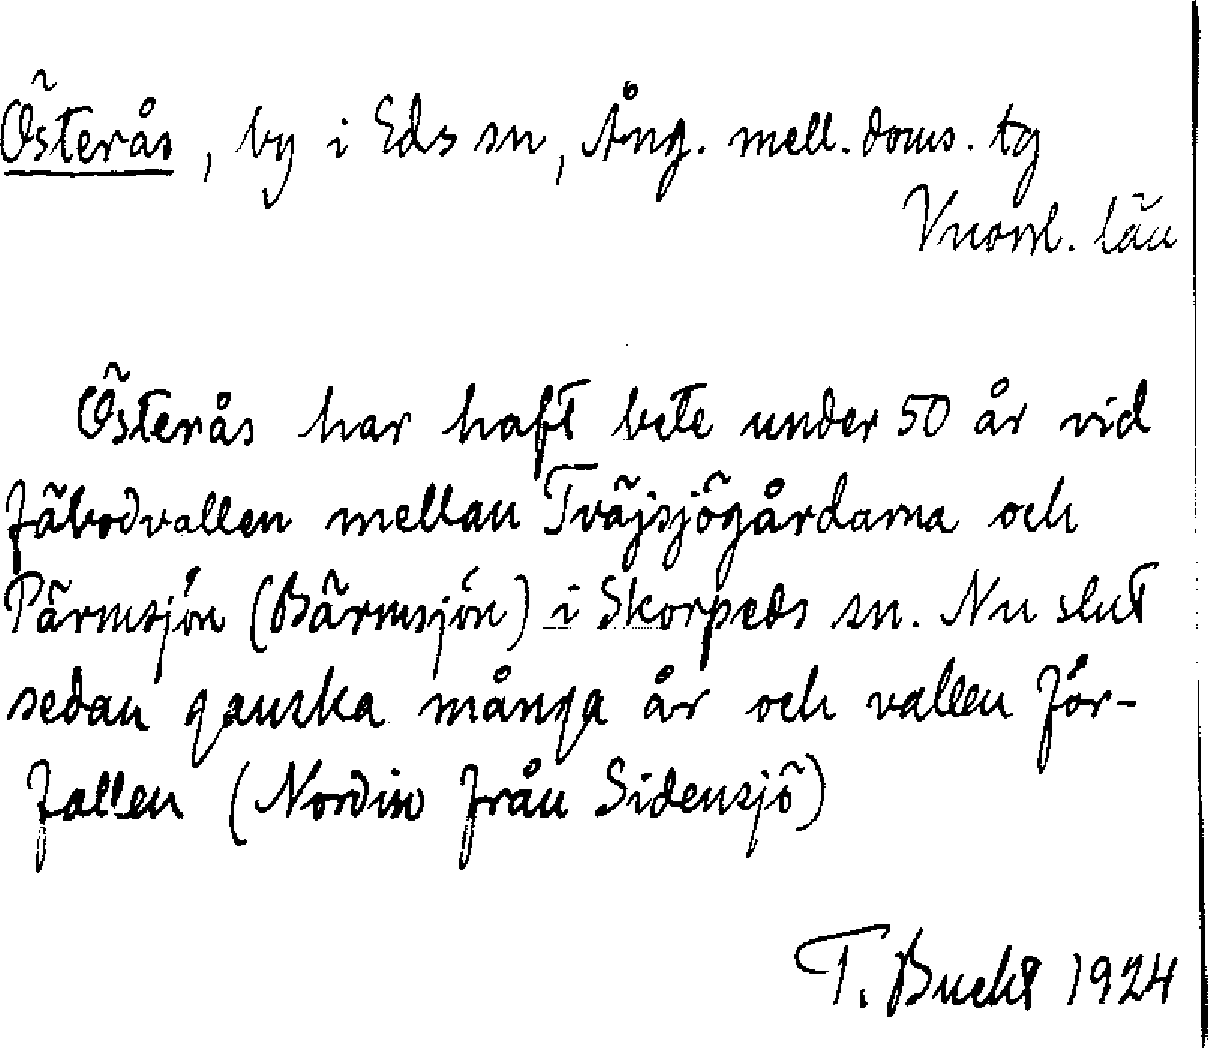 Österås, by i Eds sn, Ång. mell. doms. tg
Vnorrl. län
Österås har haft bete under 50 år vid
fäbodvallen mellan Tväjsjögårdarna och
Pärmsjön (Bärmsjön) i Skorpeds sn. Nu slut
sedan ganska många år och vallen för-
fallen (Nordin från Sidensjö)
T. Bucht 1924